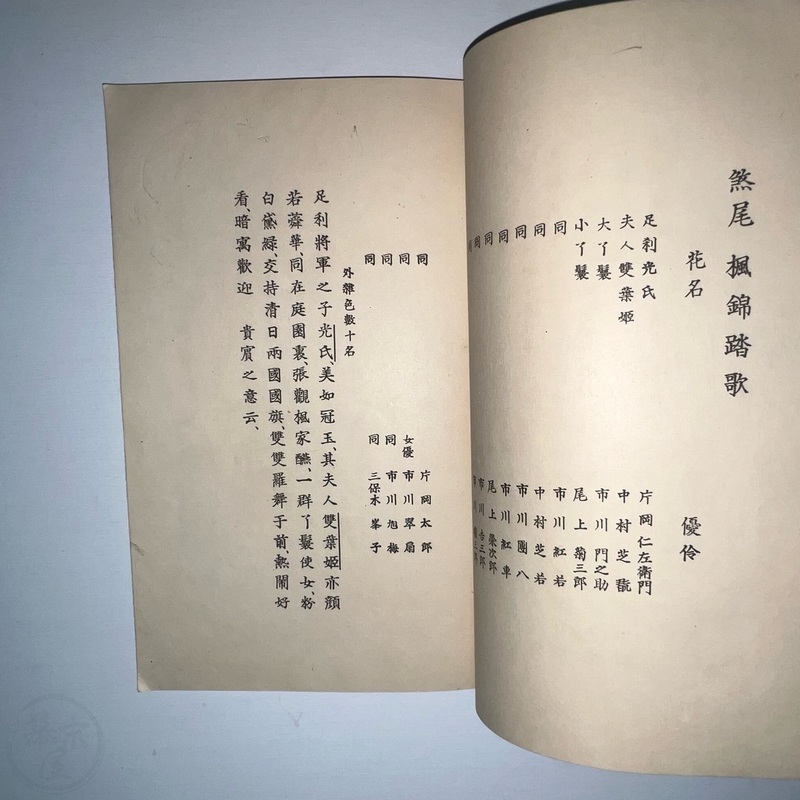 煞尾 楓錦踏歌
花名 優伶
足利光氏 片岡仁左衛門
夫人雙葉姬 中村芝翫
大丫鬟 市川門之助
小丫鬟 尾上菊三郎
同 市川紅若
同 中村芝若
同 市川團八
同 市川紅車
同 尾上榮次郎
同 市川三郎
同 片岡太郎
同 女優 市川翠扇
同 同 市川旭梅
同 同 三保木峯子
外雜色數十名
足利將軍之子光氏、美如冠玉、其夫人雙葉姬亦顏
若蕣華、同在庭園裏、張觀楓家醼、一群丫鬟使女、粉
白黛綠、交持清日兩國國旗、雙雙羅舞于前、熱鬧好
看、暗寓歡迎 貴賓之意云、